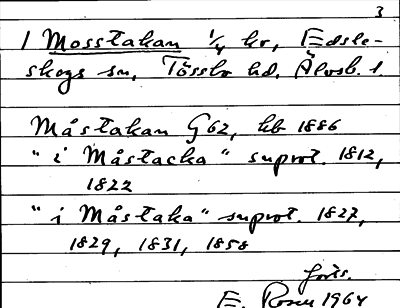 3
1 Mosstakan 1/4 hr, Edsle-
skogs sn, Tössbo hd, Älvsb. l.
Måstakan G62, kb 1886
"i Måstacka" suprot. 1812,
1822
"i Måstaka" suprot. 1827,
1829, 1831, 1858
forts.
E. Rosen 1964